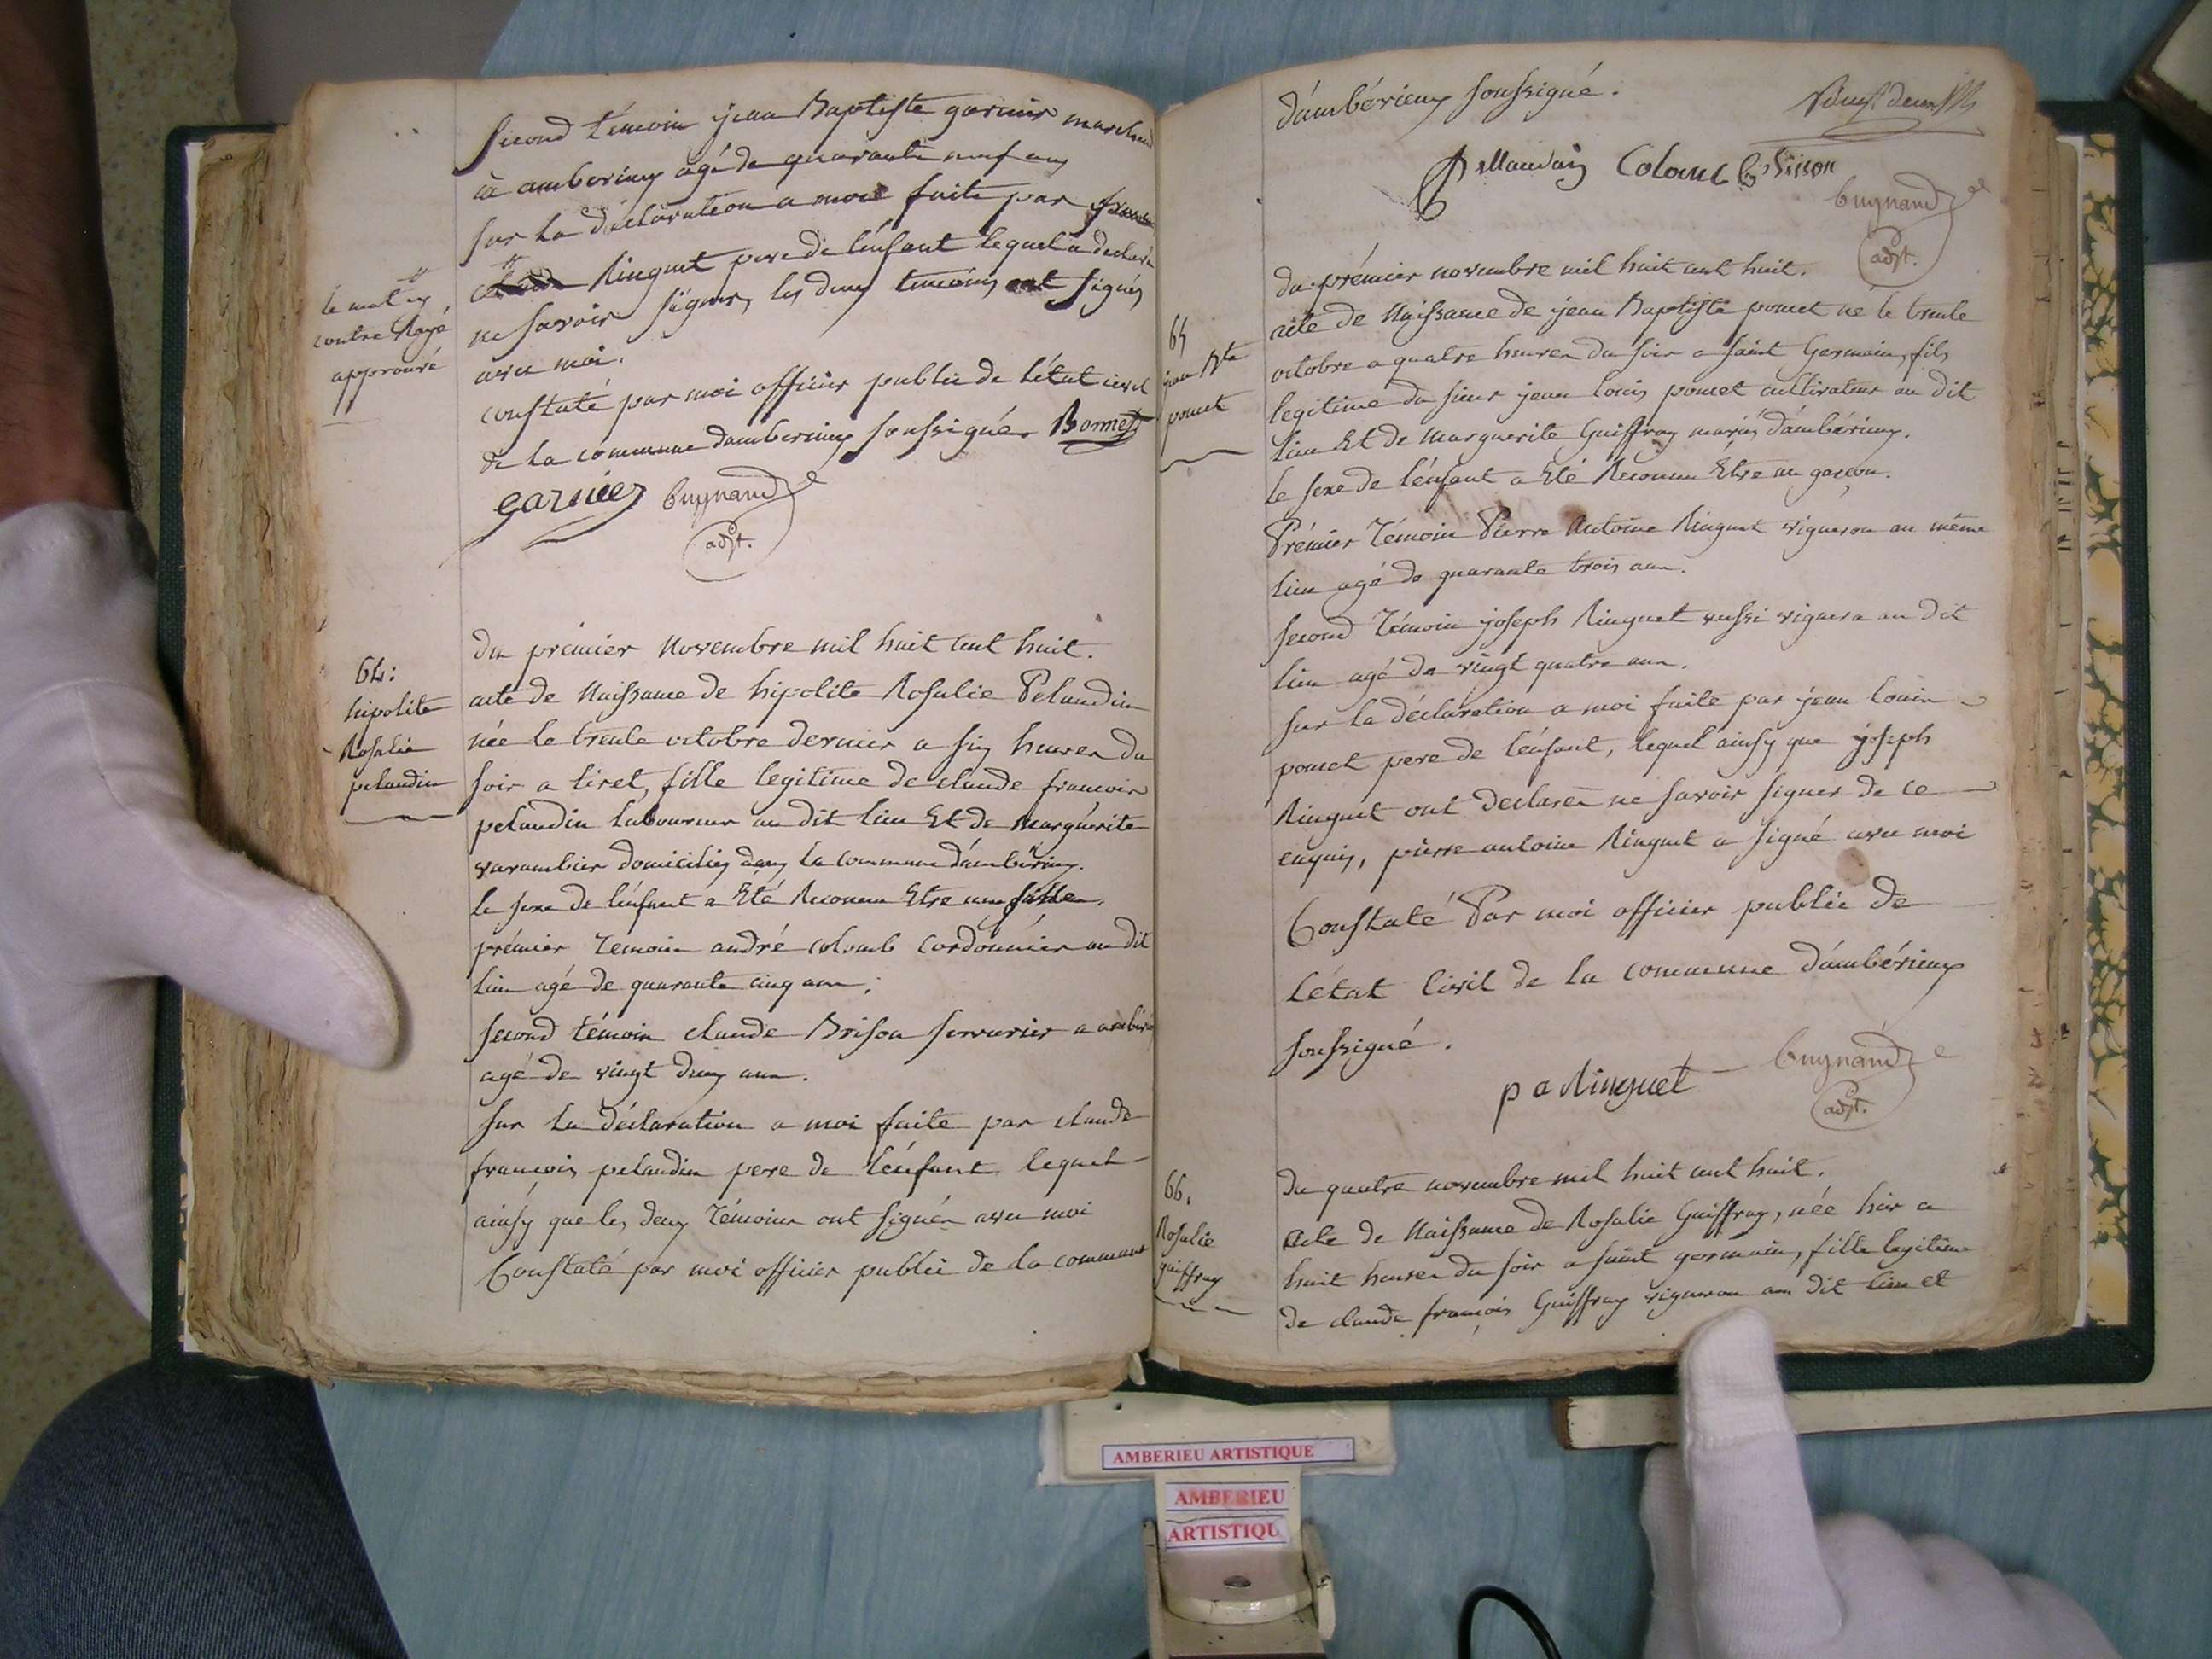 Second témoin jean Baptiste garnier marchand
à amberieux agé de quarante neuf ans
sur la déclaration a moi faite par
Ringuet pere de l'énfant lequel a declaré
ne savoir signer, les deux temoins ont signés
avec moi.
constaté par moi officier public de l'état civil
de la commune damberieux soussigné. Bonnet
garnier Cuynand
adjt.
le mot en
contre Rayé
approuvé
64:
hipolite
Rosalie
pelaudin
du premier Novembre mil huit cent huit.
acte de Naissance de hipolite Rosalie Pelaudin
née le trente octobre dernier a six heures du
soir a tiret, fille legitime de claude francois
pelaudin laboureur au dit lieu Et de Marguérite
varambier domiciliés dans la commune d'ambérieux.
le sexe de l'énfant a Eté Reconnu Etre une fille.
prémier temoin andré colomb cordonnier au dit
lieu agé de quarante cinq ans.
second témoin claude Brison serrurier a
agé de vingt deux ans.
sur la déclaration a moi faite par claude
francois pelaudin pere de l'énfant lequel
ainsy que les deux témoins ont signés avec moi
Constaté par moi officier public de la commune
d'ambérieux soussigné.
vingt deux
Pellaudin Colomb Brison
Cuynand
adjt.
65
jean Bte
pomet
du prémier novembre mil huit cent huit.
acte de Naissance de jean Baptiste pomet né le trente
octobre a quatre heures du soir a saint Germain, fils
legitime du sieur jean louis pomet cultivateur au dit
lieu Et de Marguerite Guiffray mariés d'ambérieux.
le sexe de l'énfant a Eté Reconnu Etre un garcon.
Prémier Témoin Pierre Antoine Ringuet vigneron au même
lieu agé de quarante trois ans.
second Témoin joseph Ringuet aussi vigneron au dit
lieu agé de vingt quatre ans.
sur la déclaration a moi faite par jean louis
pomet pere de l'énfant, lequel ainsy que joseph
Ringuet ont declarés ne savoir signer de ce
enquis, pierre antoine Ringuet a signé avec moi
Constaté Par moi officier public de
L'état Civil de la commune d'ambérieux
soussigné.
p a Ringuet Cuynand
adjt.
66.
Rosalie
guiffray
du quatre novembre mil huit cent huit.
acte de Naissance de Rosalie Guiffray, née hier a
huit heures du soir a saint germain, fille legitime
de claude françois Guiffray vigneron au dit lieu et
AMBERIEU ARTISTIQUE
AMBERIEU
ARTISTIQU